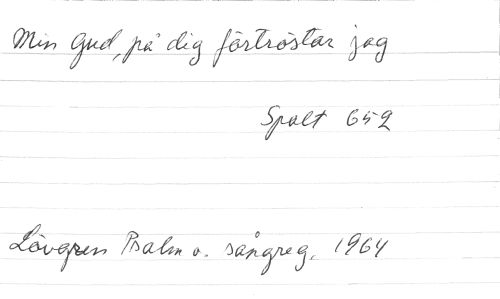 Min Gud, på dig förtröstar jag
Spalt 652
Lövgren Psalm o. sångreg. 1964